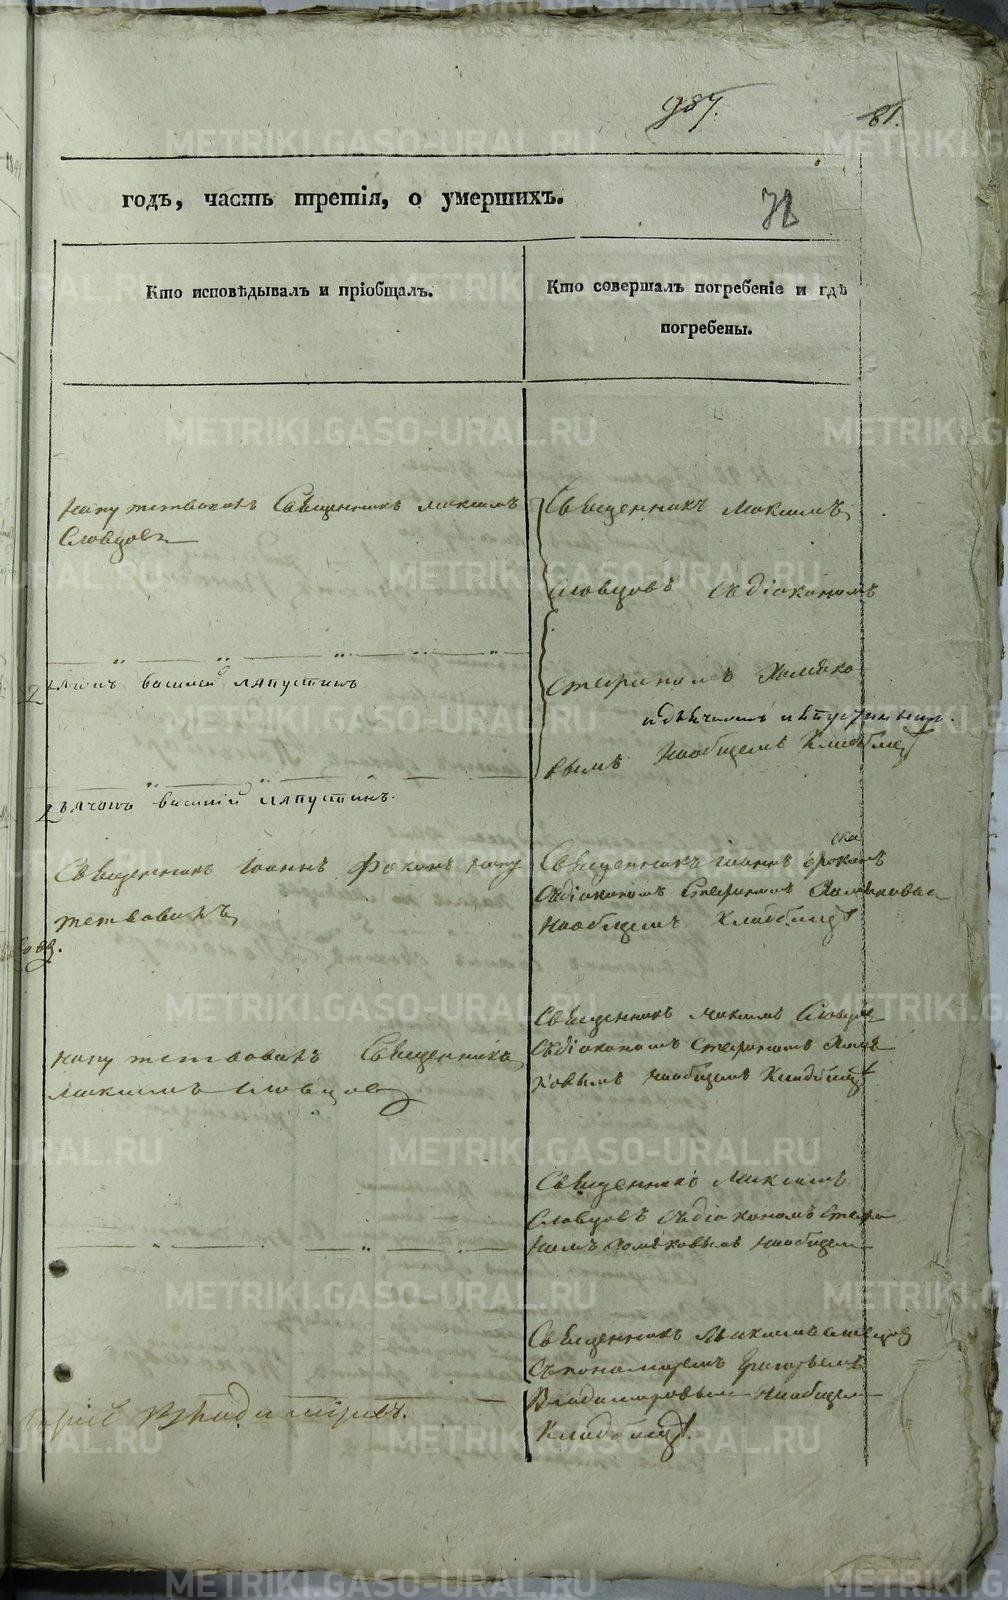 987.
81.
годъ, часть третія, о умершихъ.
Кто исповѣдывалъ и пріобщалъ.
Кто совершалъ погребеніе и гдѣ
погребены.
напутствовалъ Священникъ Максимъ
Словцовъ
Священникъ Максимъ
Словцовъ съ діакономъ
Стефаномъ Хомяко
вымъ на общемъ Кладбищѣ
василий ляпустинъ
василий ляпустинъ.
Священникъ Іоаннъ Фокинъ напу
тствовалъ
Священникъ Іоаннъ Фокинъ
съ діакономъ Стефаномъ Хомяковым
на общемъ Кладбищѣ
напутствовалъ Священникъ
Максимъ Словцовъ
Священникъ Максимъ Словцов
съ діакономъ Стефаномъ Хомя
ковымъ на общемъ Кладбищѣ
Священникъ Максимъ
Словцовъ съ діакономъ Стефа
номъ Хомяковымъ на общем
Священникъ Максимъ Словцов
съ пономаремъ Григорьемъ
Владимировым на общем
Кладбищѣ.
METRIKI.GASO-URAL.RU